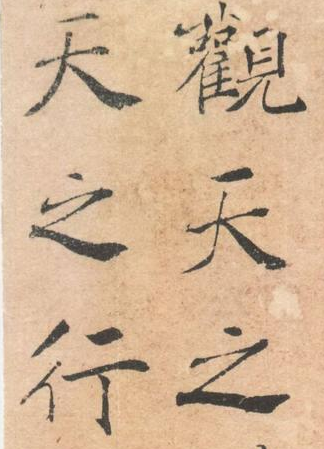 觀天之
天之行